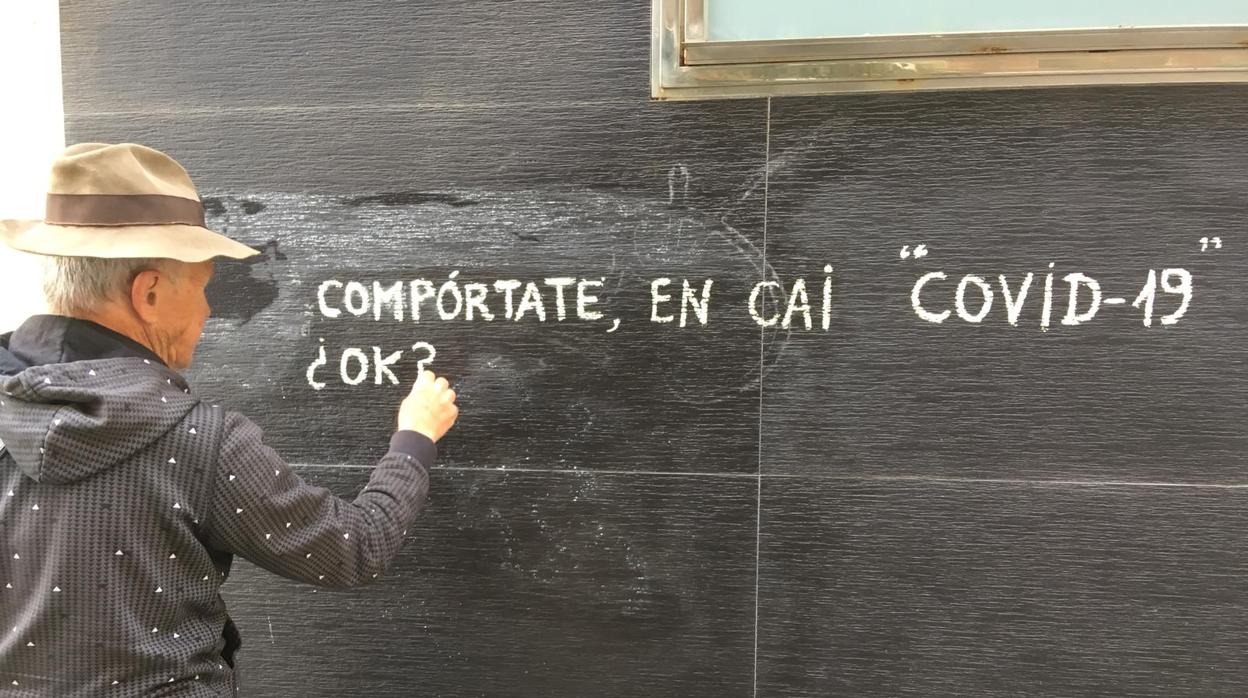 COMPÓRTATE, EN CAI “COVID-19”
¿OK?